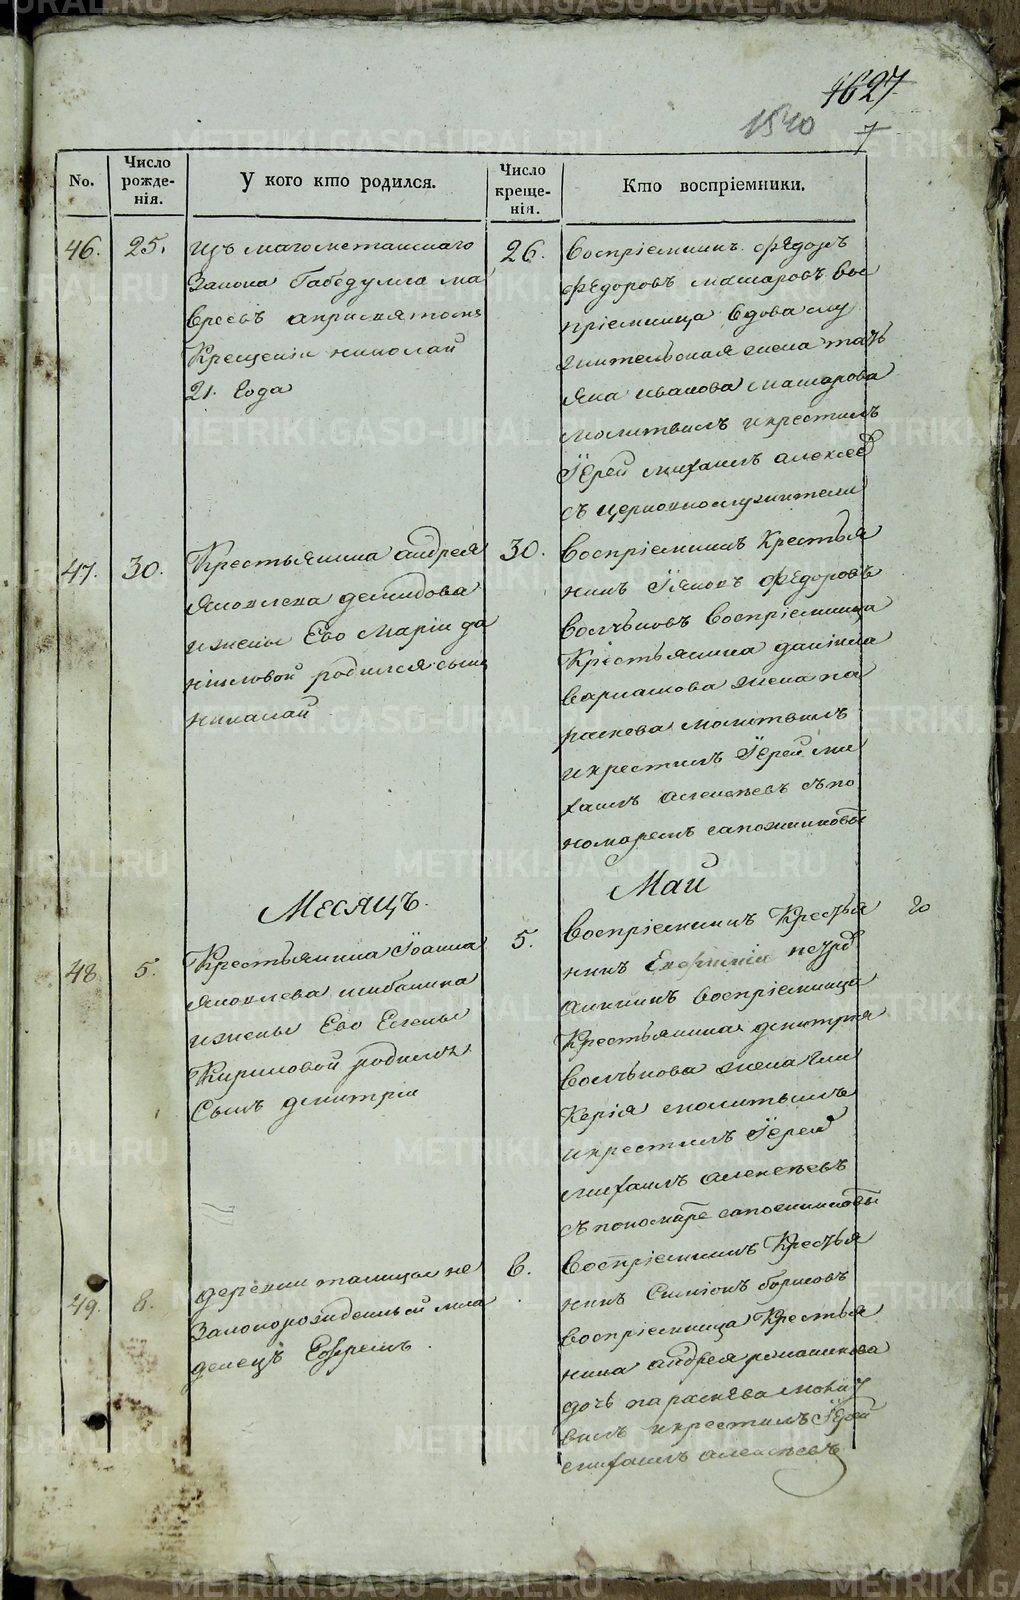 1627
1540
7
No.
Число рожденія.
У кого кто родился.
Число крещенія.
Кто воспріемники.
46. 25.
изъ магометанскаго
закона Габедулла ма
вреевъ а при святомъ
Крещеніи николай
21. года
26.
Воспріемникъ Федоръ
Федоровъ машаровъ вос
пріемница вдова слу
жительская жена тать
яна иванова машарова
молитвилъ и крестилъ
Іерей михаилъ алексѣев
съ церковнослужители
47. 30.
Крестьянина андрея
Яковлева демидова
и жены Ево Маріи да
ниловой родился сынъ
николай
30.
Воспріемникъ Крестья
нинъ Іяковъ Федоровъ
Волчьковъ Воспріемница
Крестьянина даніила
Варлакова жена па
раскева молитвилъ
и крестилъ Іерей ми
хаилъ алексѣевъ съ по
номаремъ сапожниковы
Месяцъ.
Май
48 5.
Крестьянина Іоанна
Яковлева шибанина
и жены Ево Елены
Кириловой родился
Сынъ дмитрій
5.
Воспріемникъ Крестья
нинъ
воспріемница
Крестьянина дмитрия
Волчькова жена гли
керія молитвилъ
и крестилъ Іерей
михаилъ алексѣевъ
съ пономаре сапожниковы
20
49. 6.
деревни талицы не
законорожденный мла
денецъ Ефремъ.
6.
Воспріемникъ Крестья
нинъ Симіонъ борисовъ
воспріемница Крестья
нина андрея романикова
дочь параскева молит
вилъ и крестилъ Іерей
михаилъ алексѣевъ
METRIKI.GASO-URAL.RU